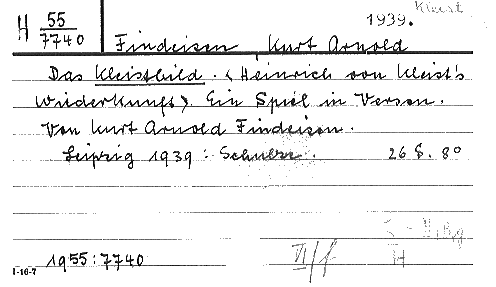 Kleist
H 55/7740 1939.
Findeisen, Kurt Arnold
Das Kleistbild. <Heinrich von Kleist's
Wiederkunft>. Ein Spiel in Versen.
Von Kurt Arnold Findeisen.
Leipzig 1939: Schulze. 26 S. 8°
H
1955:7740 VI/f
I-16-7